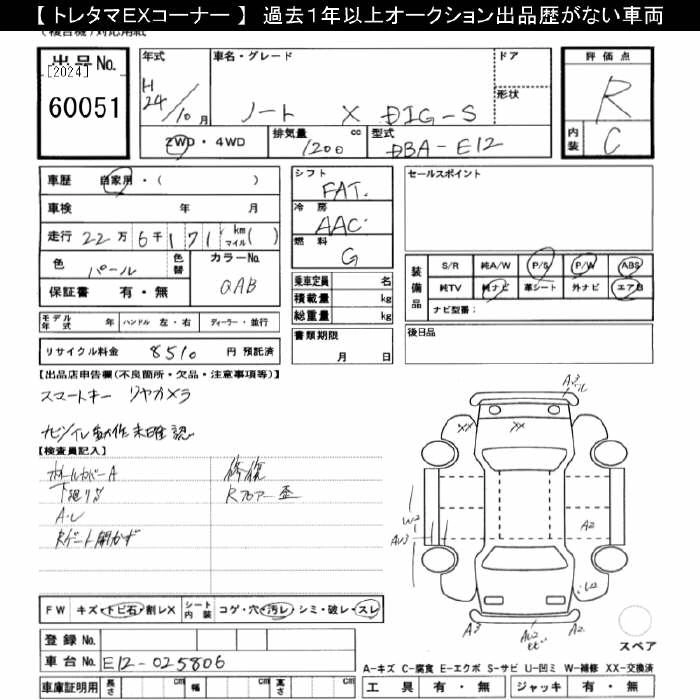 【 トレタマEXコーナー 】 過去1年以上オークション出品歴がない車両
出品No.
[2024]
60051
年式 車名・グレード ドア
形状
H24/10月 ノート X DIG-S
2WD・4WD 排気量 1200 cc 型式 DBA-E12
評価点
R
内装 C
車歴 自家用・( )
車検 年 月
走行 22万6千171 km マイル( )
色 パール 色替 カラーNo. QAB
保証書 有・無
シフト FAT.
冷房 AAC.
燃料 G
乗車定員 名
積載量 kg
総重量 kg
書類期限
月 日
セールスポイント
装備品 S/R 純A/W P/S P/W ABS
純TV 純ナビ 革シート 外ナビ エアB
ナビ型番:
後日品
モデル年式 年 ハンドル 左・右 ディーラー・並行
リサイクル料金 8510 円 預託済
【出品店申告欄(不良箇所・欠品・注意事項等)】
スマートキー リヤカメラ
ナビソイル動作未確認
【検査員記入】
ホイールカバーA 修復
下廻りS Rフロアー歪
A・U
Rゲート開かず
FW キズ・トビ石・割レX シート内装 コゲ・穴・汚レ・シミ・破レ・スレ
登録No.
車台No. E12-025806
車庫証明用 長さ cm 幅 cm 高さ cm
A3
XX XX
W2
AU3
A2
A3
AU2
スペア
A-キズ C-腐食 E-エクボ S-サビ U-凹ミ W-補修 XX-交換済
工具 有・無 ジャッキ 有・無